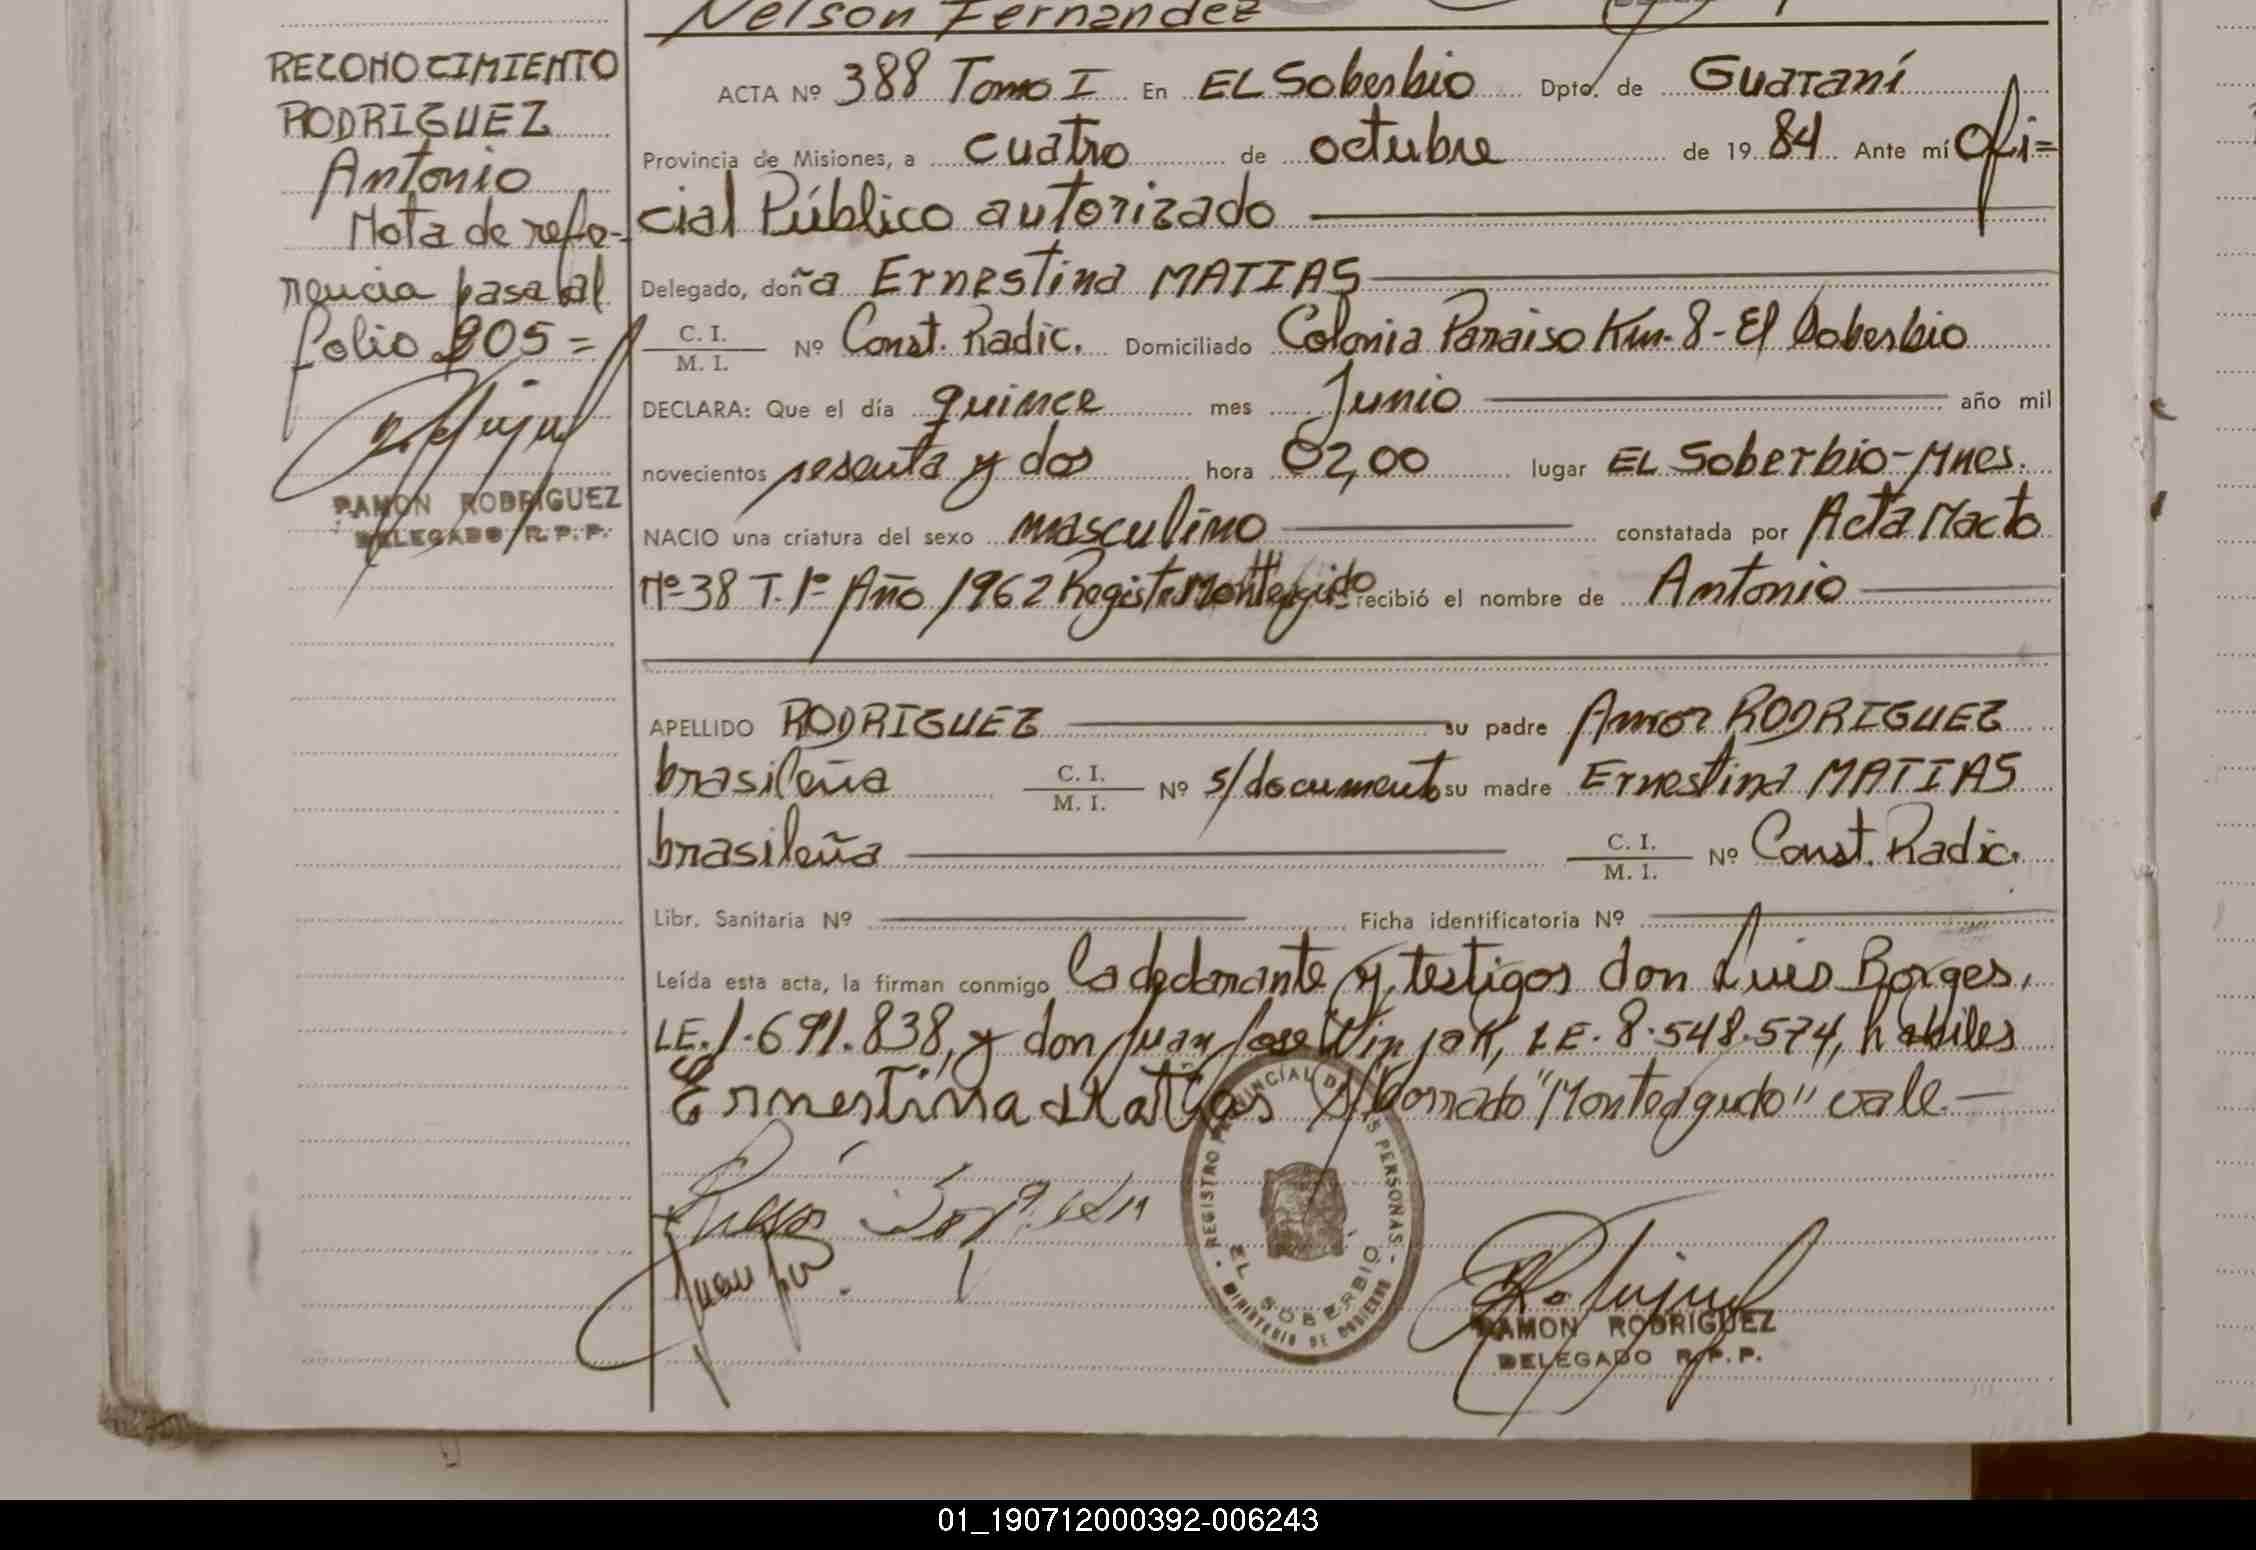 Nelson Fernandez
RECONOCIMIENTO
RODRIGUEZ
Antonio
Nota de refe-
rencia pasa al
folio 905=
RAMON RODRIGUEZ
DELEGADO R.P.P.
ACTA Nº 388 Tomo I En EL Soberbio Dpto. de Guaraní
Provincia de Misiones, a cuatro de octubre de 1984 Ante mí Ofi=
cial Público autorizado
Delegado, doña Ernestina MATIAS
C. I.
M. I. Nº Const. Radic. Domiciliado Colonia Paraiso Km. 8 - El Soberbio
DECLARA: Que el día quince mes Junio año mil
novecientos sesenta y dos hora 02,00 lugar EL Soberbio-Mnes.
NACIO una criatura del sexo masculino constatada por Acta Nacto
Nº 38 T. 1º Año 1962 Registro Monteagudo recibió el nombre de Antonio
APELLIDO RODRIGUEZ su padre Amor RODRIGUEZ
brasileña C. I.
M. I. Nº s/documento su madre Ernestina MATIAS
brasileña C. I.
M. I. Nº Const. Radic.
Libr. Sanitaria Nº Ficha identificatoria Nº
Leída esta acta, la firman conmigo la declarante y testigos don Luis Borges,
LE. 1.691.838, y don Juan Jose Winjak, LE. 8.548.574, habiles
Ernestina Matias S/borrado "Monteagudo" vale.—
REGISTRO PROVINCIAL DE LAS PERSONAS
EL SOBERBIO
MINISTERIO DE GOBIERNO
RAMON RODRIGUEZ
DELEGADO R.P.P.
01_190712000392-006243